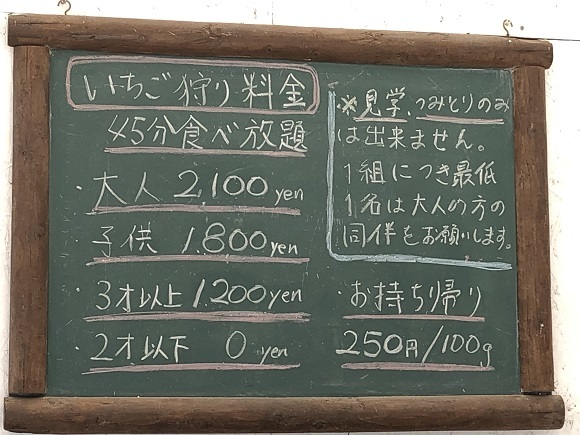 いちご狩り料金
45分食べ放題
・大人 2,100 yen
・子供 1,800 yen
・3才以上 1,200 yen
・2才以下 0 yen
※見学、つみとりのみ
は出来ません。
1組につき最低
1名は大人の方の
同伴をお願いします。
・お持ち帰り
250円/100g